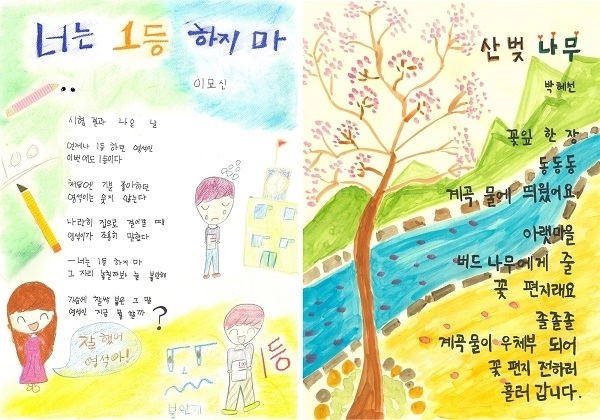 너는 1등 하지 마
이모신
시험 결과 나온 날
언제나 1등 하던 영석인
이번에도 1등이다
처음엔 기분 좋아하던
영석이는 웃지 않는다
나란히 집으로 걸어올 때
영석이가 조용히 말했다
—너는 1등 하지 마
그 자리 놓칠까봐 늘 불안해
가슴에 찰싹 붙은 그 말
영석인 지금 뭘 할까
?
100
잘했어
영석아!
불안해
1등
산벚 나무
박혜선
꽃잎 한 장
동동동
계곡 물에 띄웠어요
아랫마을
버드나무에게 줄
꽃 편지래요
졸졸졸
계곡물이 우체부 되어
꽃 편지 전하러
흘러 갑니다.